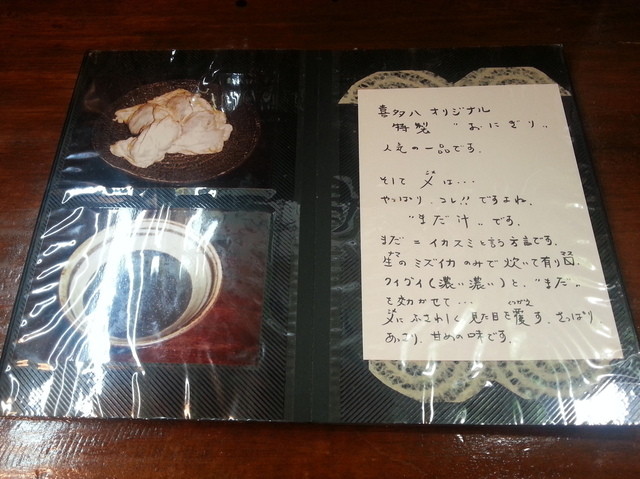 喜多八 オリジナル
特製 〝おにぎり〟
人気の一品です。
そして 〆は...
やっぱり、コレ!! ですよね。
〝まだ汁〟です。
まだ = イカスミと言う方言です。
生のミズイカのみで 炊いて有り
ワイグイ(濃い濃い)と、〝まだ〟
を効かせて...
〆にふさわしく 見た目を覆す、さっぱり
あっさり、甘めの味です。